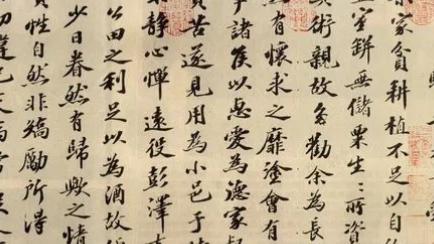 家貧耕植不足以自
室缾無儲粟生〻所資
術親故多勸余為長
有懷求之靡塗會有
諸侯以惠愛為德家
貧苦遂見用為小邑于
靜心憚遠役彭澤
公田之利足以為酒故
少日眷然有歸歟之情
質性自然非矯勵所得
切違己